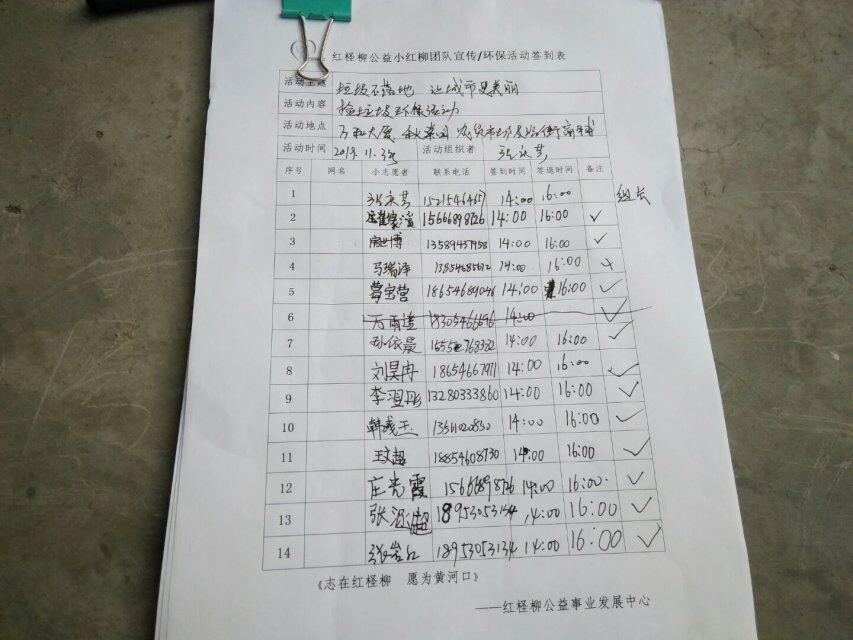 红柽柳公益小红柳团队宣传/环保活动签到表
活动主题 垃圾不落地 让城市更美丽
活动内容 捡垃圾环保活动
活动地点 万和大厦
活动时间 2018.11.3 活动组织者
序号 网名 小志愿者 联系电话 签到时间 签退时间 备注
1 14:00 16:00 组长
2 15666898726 14:00 16:00 ✓
3 13589457958 14:00 16:00 ✓
4 马瑞泽 13854685672 14:00 16:00
5 18654689046 14:00 16:00 ✓
6 18305466696 14:00 ✓
7 孙依晨 14:00 16:00 ✓
8 刘昊冉 18654667971 14:00 16:00 ✓
9 李翌彤 13280333860 14:00 16:00 ✓
10 14:00 16:00 ✓
11 王文超 18854608730 14:00 16:00 ✓
12 庄光霞 15666898726 14:00 16:00 ✓
13 18953053134 14:00 16:00 ✓
14 张岩红 18953053134 14:00 16:00 ✓
《志在红柽柳 愿为黄河口》
——红柽柳公益事业发展中心